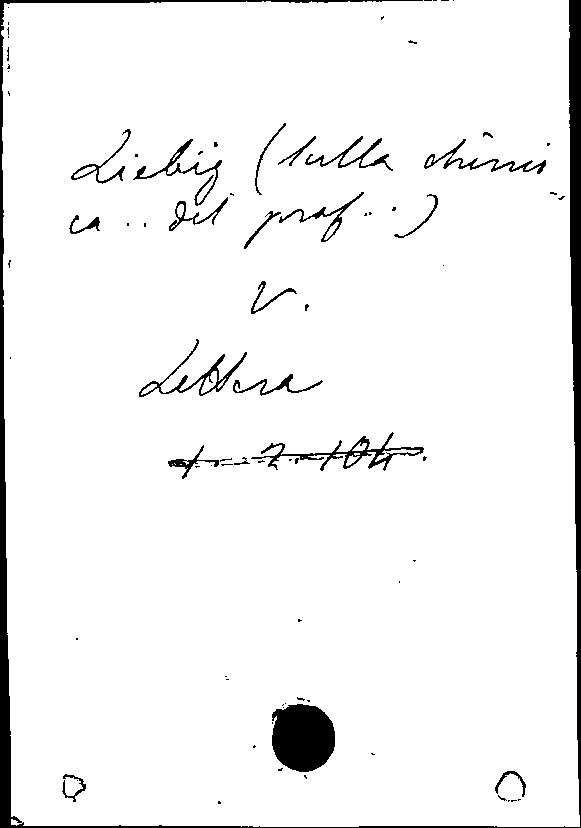 Liebig (sulla chimi-
ca .. del prof. ..)
V.
Lettera
1. 2. 104.